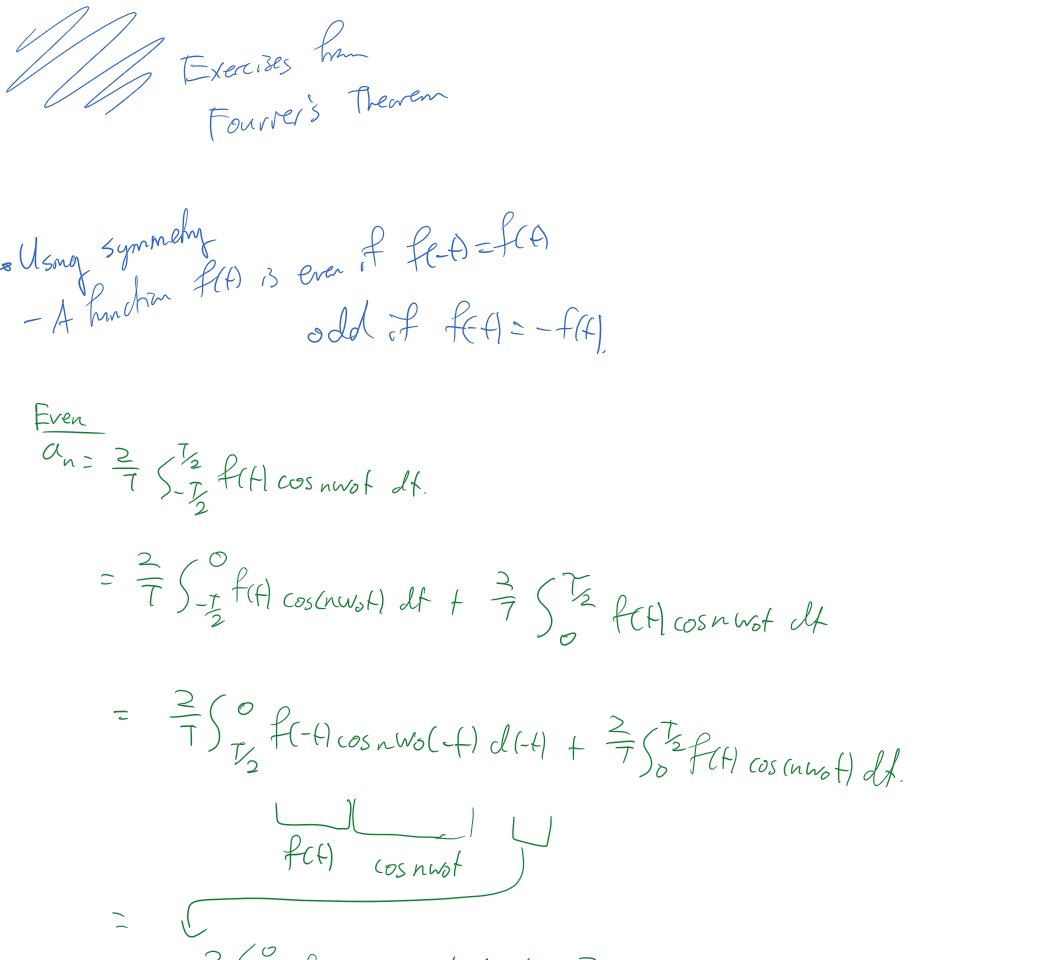 Exercises from
Fourier's Theorem
• Using symmetry
- A function f(t) is even if f(-t) = f(t)
odd if f(-t) = -f(t).
Even
aₙ = 2/T ∫_{-T/2}^{T/2} f(t) cos nω₀t dt.
= 2/T ∫_{-T/2}^{0} f(t) cos(nω₀t) dt + 2/T ∫_{0}^{T/2} f(t) cos nω₀t dt
= 2/T ∫_{T/2}^{0} f(-t) cos nω₀(-t) d(-t) + 2/T ∫_{0}^{T/2} f(t) cos(nω₀t) dt.
f(t) cos nω₀t
=